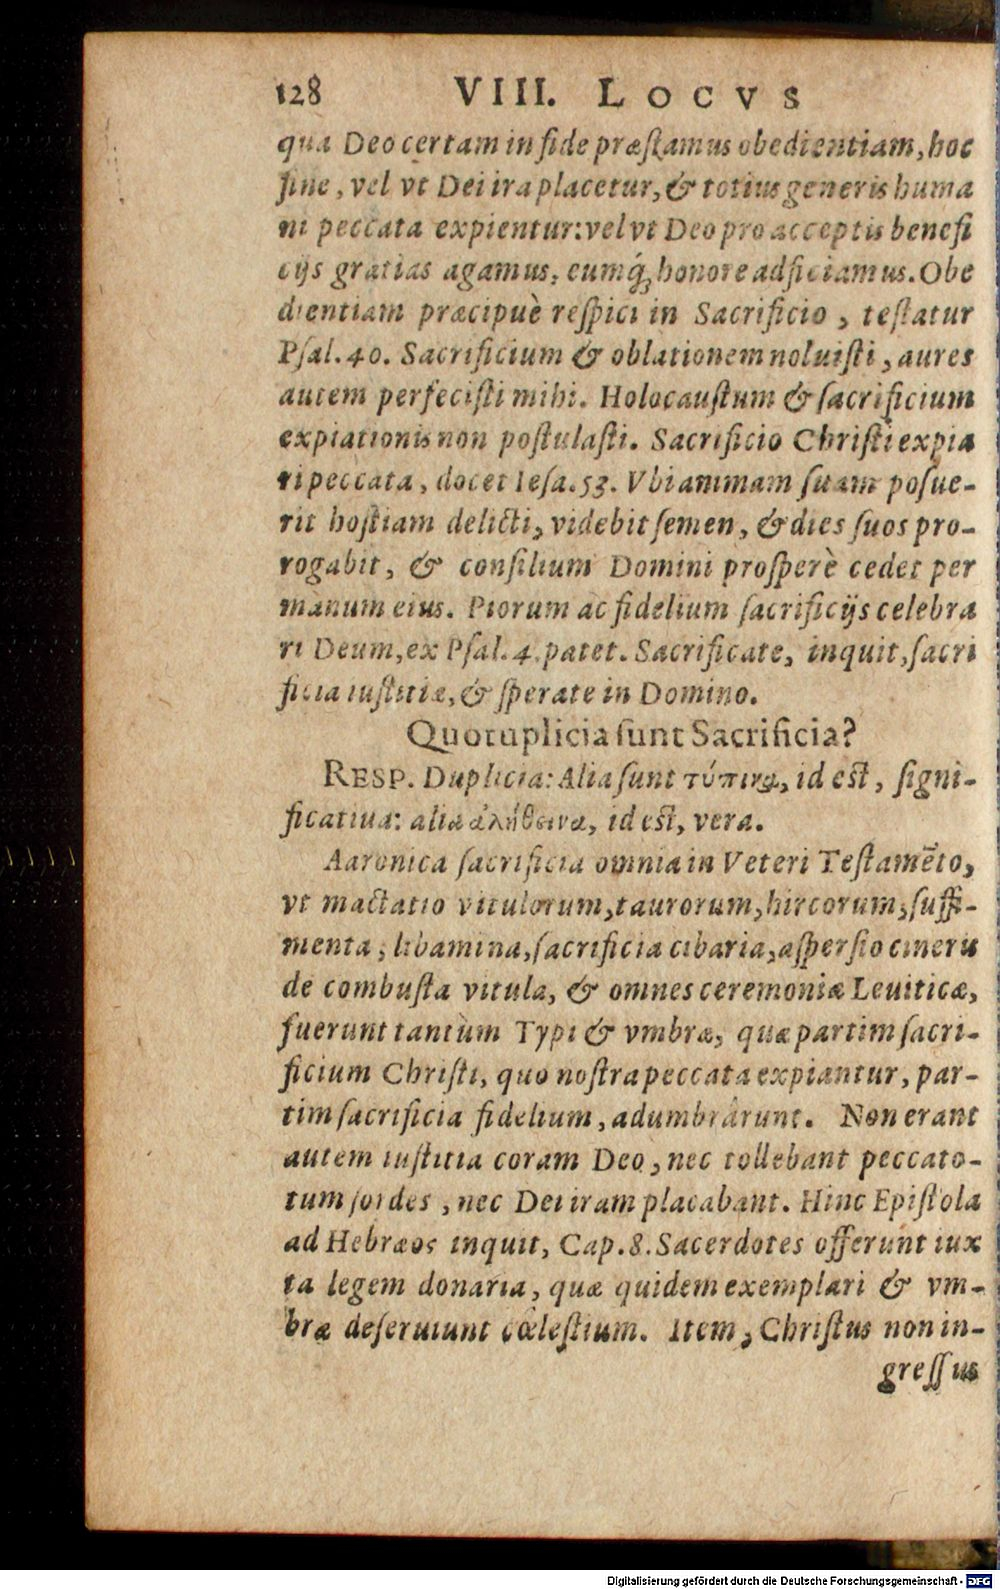 128 VIII. LOCVS
qua Deo certam in fide præſtamus obedientiam, hoc
fine, vel vt Dei ira placetur, & totius generis huma
ni peccata expientur: vel vt Deo pro acceptis benefi
cijs gratias agamus, eumq́ꝫ honore adficiamus. Obe
dientiam præcipuè reſpici in Sacrificio, teſtatur
Pſal. 40. Sacrificium & oblationem noluiſti, aures
autem perfeciſti mihi. Holocauſtum & ſacrificium
expiationis non poſtulaſti. Sacrificio Chriſti expia
ri peccata, docet Ieſa. 53. Vbi animam ſuam poſue-
rit hoſtiam delicti, videbit ſemen, & dies ſuos pro-
rogabit, & conſilium Domini proſperè cedet per
manum eius. Piorum ac fidelium ſacrificijs celebra
ri Deum, ex Pſal. 4. patet. Sacrificate, inquit, ſacri
ficia iuſtitiæ, & ſperate in Domino.
Quotuplicia ſunt Sacrificia?
RESP. Duplicia: Alia ſunt τύπικα, id eſt, ſigni-
ficatiua: alia ἀλήθεινα, id eſt, vera.
Aaronica ſacrificia omnia in Veteri Teſtamēto,
vt mactatio vitulorum, taurorum, hircorum, ſuffi-
menta, libamina, ſacrificia cibaria, aſperſio cineris
de combuſta vitula, & omnes ceremoniæ Leuiticæ,
fuerunt tantùm Typi & vmbræ, quæ partim ſacri-
ficium Chriſti, quo noſtra peccata expiantur, par-
tim ſacrificia fidelium, adumbrârunt. Non erant
autem iuſtitia coram Deo, nec tollebant peccato-
rum ſordes, nec Dei iram placabant. Hinc Epiſtola
ad Hebræos inquit, Cap. 8. Sacerdotes offerunt iux
ta legem donaria, quæ quidem exemplari & vm-
bræ deſeruiunt cœleſtium. Item, Chriſtus non in-
greſſus
Digitalisierung gefördert durch die Deutsche Forschungsgemeinschaft - DFG